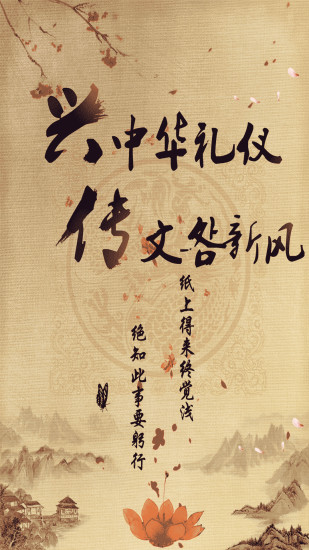 兴中华礼仪
传文新风
纸上得来终觉浅
绝知此事要躬行